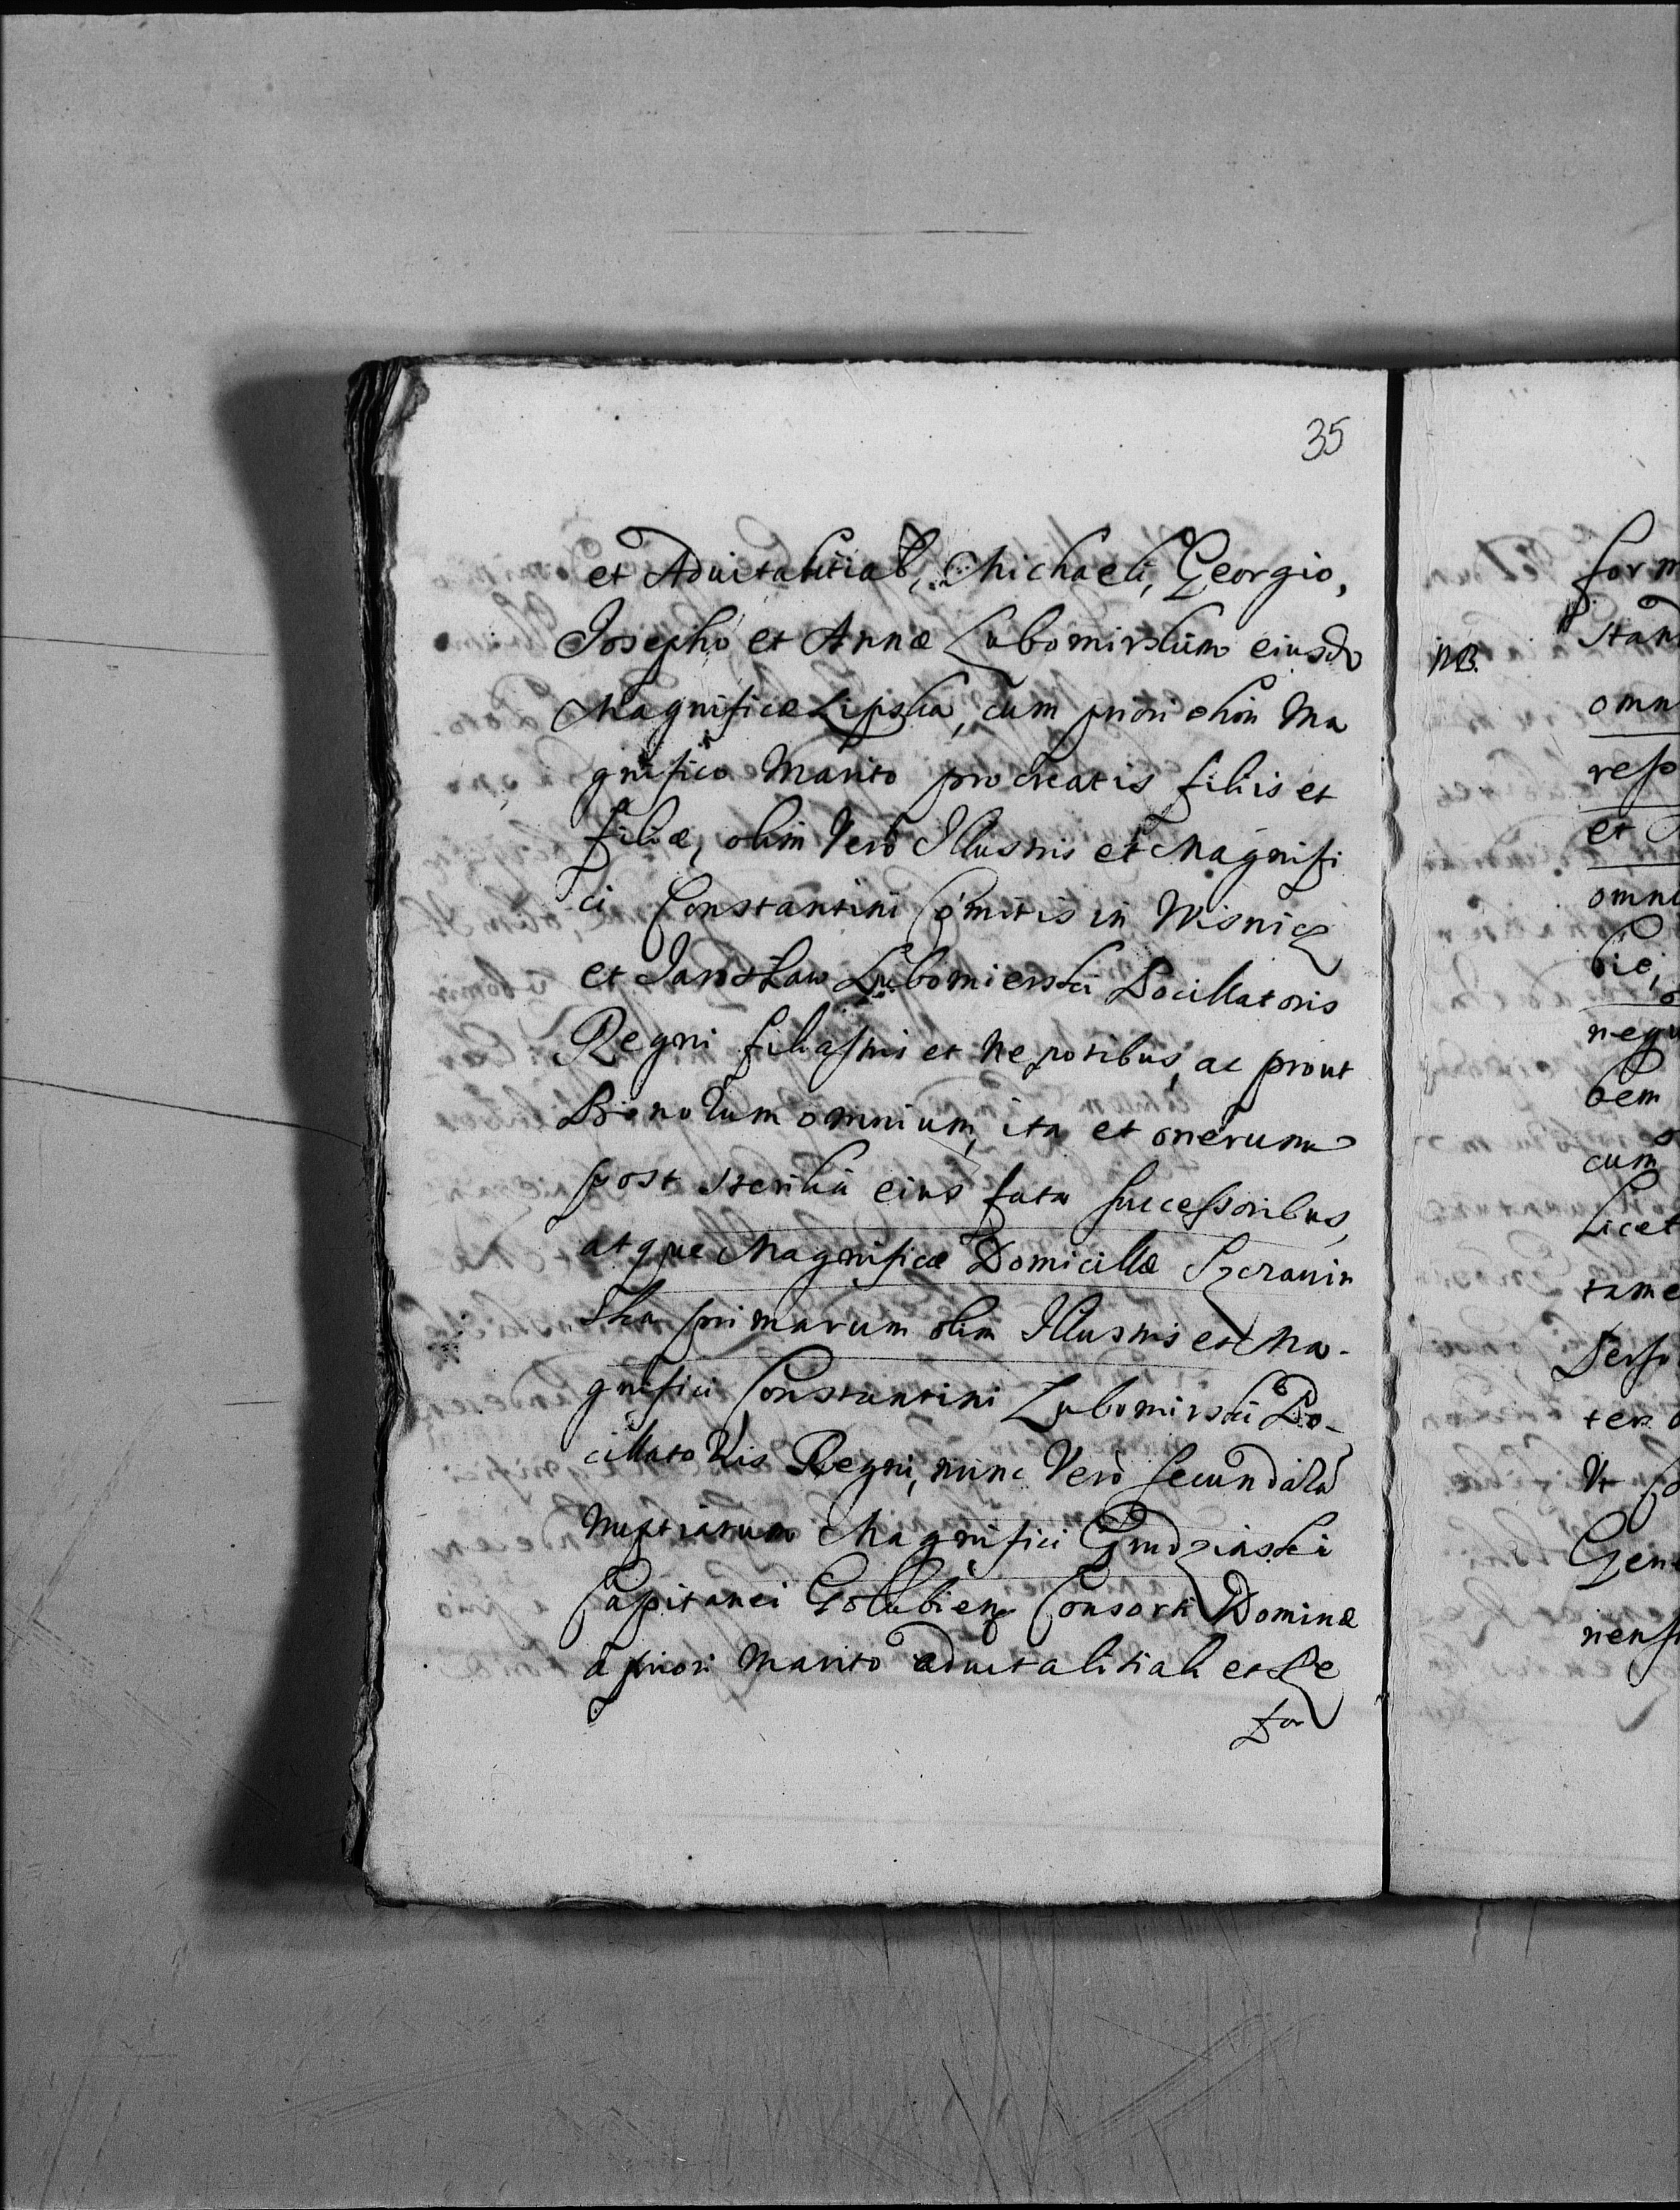 35
et Advitalitiab, Michaeli, Georgio,
Josepho et Annæ Lubomirskim eiusdo
Magnificæ Lipska, cum priori olim Ma
gnifico Marito procreatis filiis et
filiæ, olim Verò Illustris et Magnifi
ci Constantini Comitis in Wisnicz
et Jaroslaw Lubomierski Pocillatoris
Regni filiastris et Nepotibus, ac prout
Bonorum omnium, ita et onerum
post sterilia eius fata successoribus,
atque Magnificæ Domicillæ Szczawin
ska primarum olim Illustris et Ma-
gnifici Constantini Lubomirski Po-
cillatoris Regni, nunc Verò secundaru
Nuptiarum Magnifici Grudzinski
Capitanei Golubien Consorti Dominæ
à priori Marito advitalitiali et Re
for
NB.
form
stan
omn
resp
et
omni
bie,
negu
bem
cum
Licet
tame
Perso
ter
Vt
Gen
nens